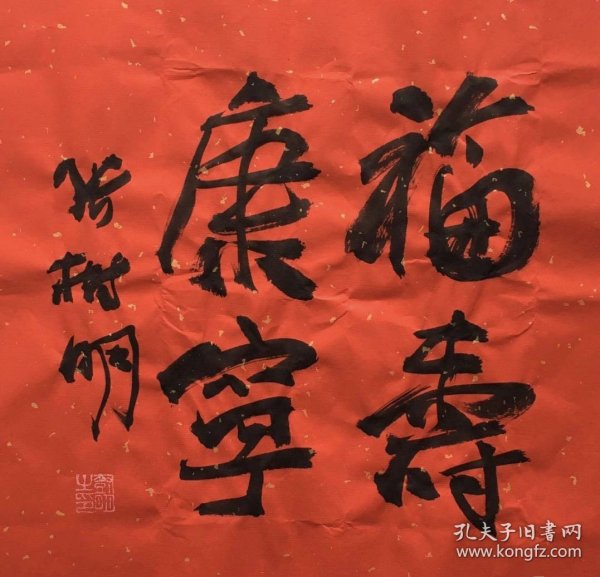 福寿
康宁
张树明
孔夫子旧书网
www.kongfz.com